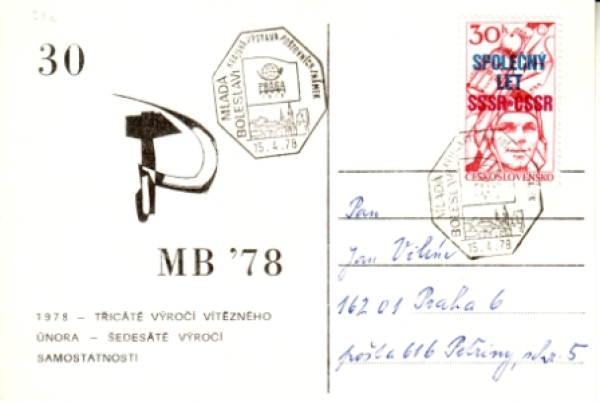 30
MLADÁ
BOLESLAV
KRAJSKÁ VÝSTAVA POŠTOVNÍCH ZNÁMEK
PRAGA
1978
15.4.78
MB '78
1978 – TŘICÁTÉ VÝROČÍ VÍTĚZNÉHO
ÚNORA – ŠEDESÁTÉ VÝROČÍ
SAMOSTATNOSTI
30h
SPOLEČNÝ
LET
SSSR-ČSSR
ČESKOSLOVENSKO
MLADÁ
BOLESLAV
15.4.78
Pan
Jan
162 01 Praha 6
pošta 616 Petřiny, schr. 5